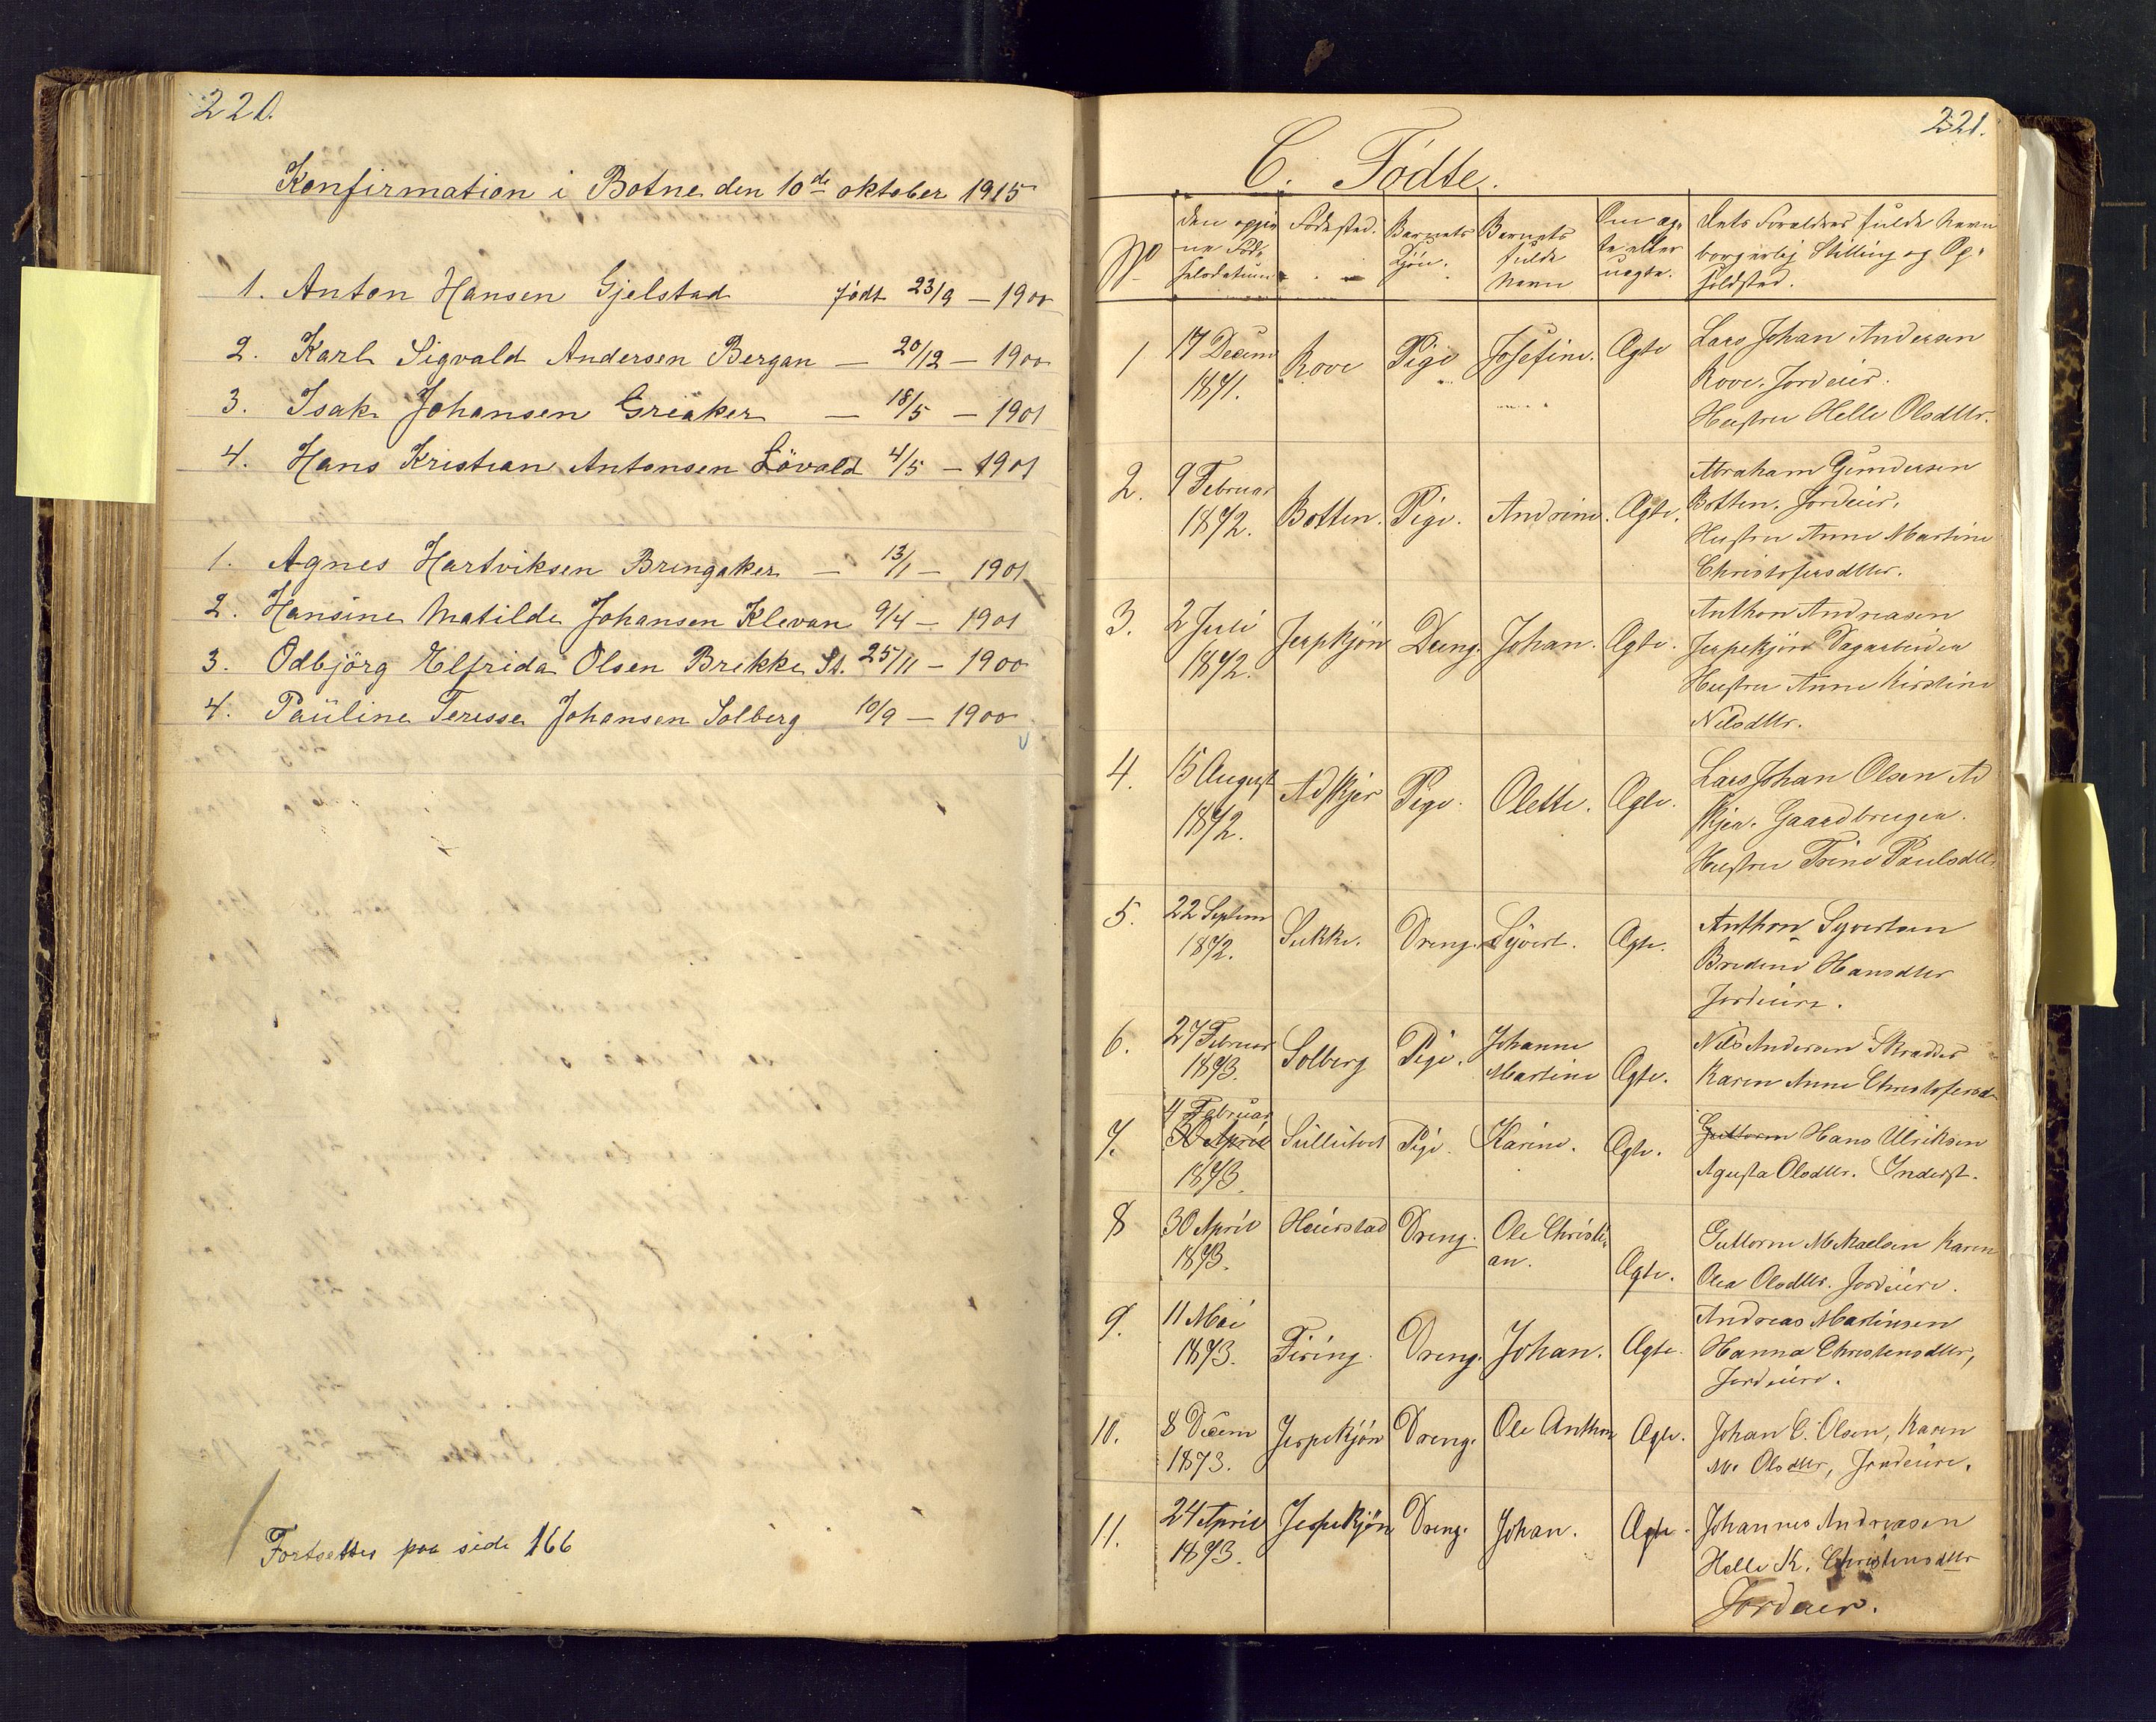 220.
Konfirmation i Botne den 10de oktober 1915
1. Anton Hansen Gjelstad født 23/9 — 1900
2. Karl Sigvald Andersen Bergan — 20/12 — 1900
3. Isak Johansen Greaker — 18/5 — 1901
4. Hans Kristian Antonsen Lövald 4/5 — 1901
1. Agnes Hartviksen Bringaker — 13/1 — 1901
2. Hansine Matilde Johansen Klevan 9/4 — 1901
3. Odbjörg Elfrida Olsen Brekke St. 25/11 — 1900
4. Pauline Teresse Johansen Solberg 10/9 — 1900
Fortsettes paa side 166
221.
C. Födte.
No
den opgiv
ne Föd-
selsdatum
Födested.
Barnets
Kjön.
Barnets
fulde
Navn
Om æg-
te eller
uægte.
Dets Forældres fulde Navn
borgerlig Stilling og Op-
holdsted.
1 17 Decem 1871. Rove Pige Josefine. Ægte Lars Johan Andersen
Rove. Jordeier.
Hustru Helle Olsdttr.
2. 9 Februar 1872. Botten. Pige. Andrine. Ægte. Abraham Gundersen
Botten. Jordeier.
Hustru Anne Martine
Christofersdttr.
3. 2 Juli 1872. Jerpekjön Dreng. Johan. Ægte. Anthon Andreasen
Jerpekjön Dagarbeider
Hustru Anne Kirstine
Nilsdttr.
4. 15 August 1872. Adskjer Pige. Olette. Ægte. Lars Johan Olsen Ad
skjer. Gaardbruger.
Hustru Trine Paulsdttr
5. 22 Septem 1872. Sukke. Dreng. Syvert. Ægte. Anthon Syvertsen
Bredine Hansdtter
Jordeiere.
6. 27 Februar 1873. Solberg Pige. Johanne
Martine Ægte. Nils Andersen Skradder
Karen Anne Christofersd
7. 4 Februar
30 April 1873. Pige. Karine. Ægte. Guttorm Hans Ulriksen
Agusta Olsdttr. Inderst.
8 30 April 1873. Heierstad Dreng. Ole Christi-
an. Ægte. Guttorm Mikaelsen Karen
Olea Olsdttr. Jordeiere.
9. 11 Mai 1873. Firing. Dreng. Johan. Ægte. Andreas Martinsen
Hanna Christensdttr,
Jordeiere.
10. 8 Decem 1873. Jerpekjön Dreng. Ole Anthon Ægte. Johan C. Olsen, Karen
M. Olsdttr, Jordeiere.
11. 24 April 1873. Jerpekjön Dreng. Johan. Ægte. Johannes Andreasen
Helle K. Christensdttr
Jordeier.